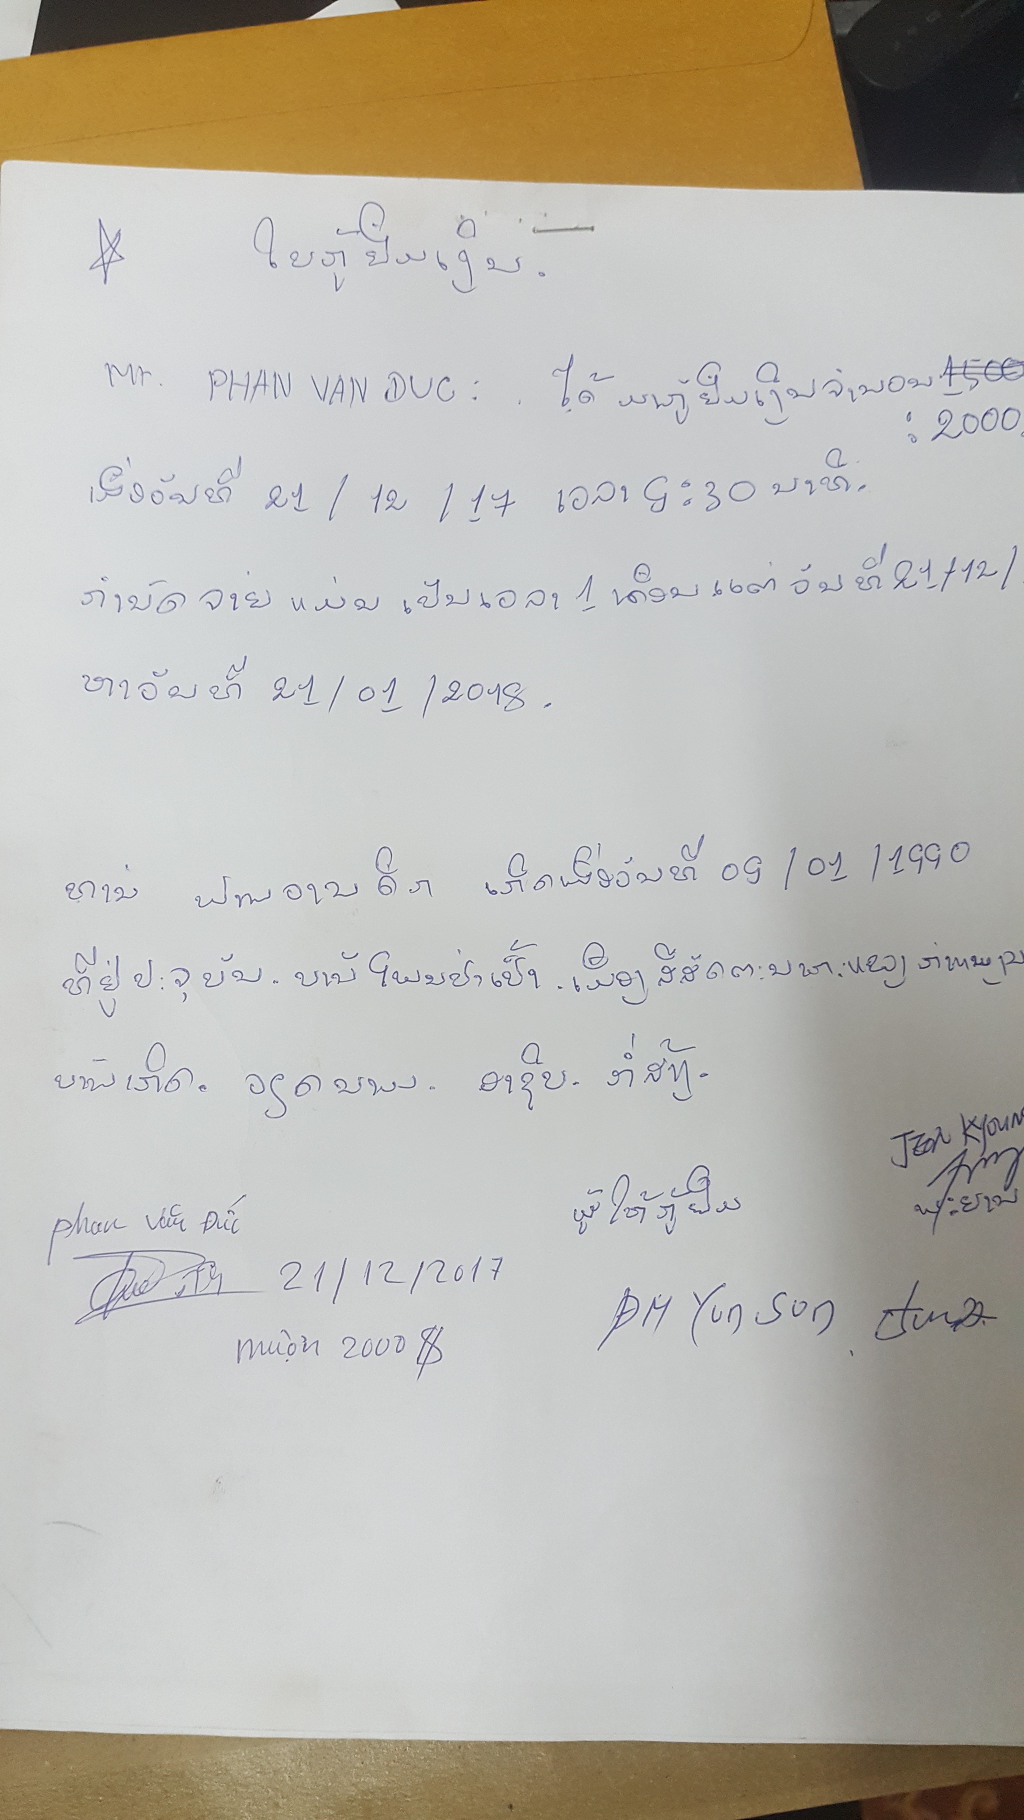 ໃບກູ້ຢືມເງິນ.
Mr. PHAN VAN DUC: ໄດ້ມາກູ້ຢືມເງິນຈຳນວນ 1500
: 2000.
ເມື່ອວັນທີ 21 / 12 / 17 ເວລາ 9:30 ນາທີ.
ກຳນົດຈ່າຍ ແມ່ນ ເປັນເວລາ 1 ເດືອນ ແຕ່ ວັນທີ 21/12/
ຫາວັນທີ 21/01/2018.
ທ່ານ ຟານວານດຶກ ເກີດເມື່ອວັນທີ 09/01/1990
ທີ່ຢູ່ປະຈຸບັນ. ບ້ານ ໂພນປ່າເປົ້າ. ເມືອງ ສີສັດຕະນາກ
ບ້ານເກີດ. ວຽດນາມ. ອາຊີບ. ກໍ່ສ້າງ.
JEON KYOUN
ຜູ້ໃຫ້ກູ້ຢືມ ພະຍານ
Phan Văn Đức
21/12/2017
mượn 2000 $
Yun Sun